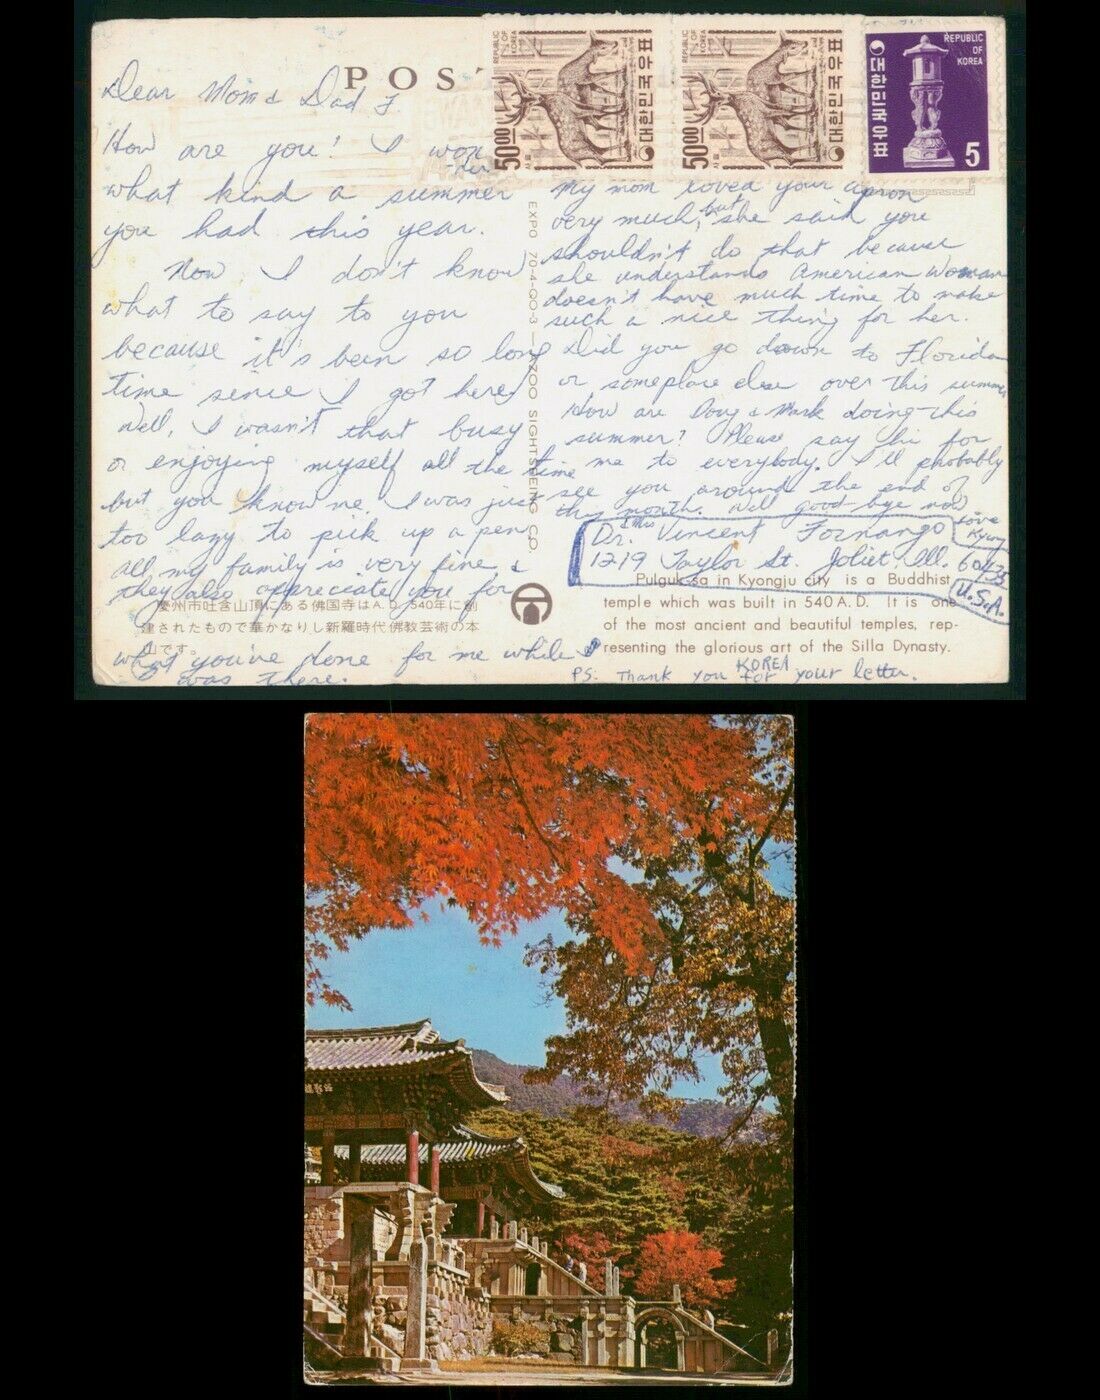 POST
Dear Mom & Dad F
How are you! I won
-der
what kind a summer
you had this year.
Now, I don't know
what to say to you
because it's been so long
time sence I got here
Well, I wasn't that busy
or enjoying myself all the time
but you know me. I was just
too lazy to pick up a pen
all my family is very fine &
they also appreciate you for
what you've done for me while
I was there.
REPUBLIC OF KOREA
대한민국우표
50.00
사슴
REPUBLIC OF KOREA
대한민국우표
50.00
사슴
REPUBLIC
OF
KOREA
대한민국우표
5
My mom loved your apron
very much, but she said you
shouldn't do that because
she understands American Woman
doesn't have much time to make
such a nice thing for her.
Did you go down to Florida
or someplace else over this summer
How are Doug & Mark doing this
summer? Please say hi for
me to everybody. I'll probably
see you around the end of
this month. Well good-bye now
Love
Kyung
Dr. & Mrs Vincent Fornango
1219 Taylor St. Joliet, Ill. 60435
U.S.A.
KOREA
P.S. Thank you for your letter.
EXPO 70-4-00-3 KZOO SIGHTSEEING CO.
慶州市吐含山頂にある佛国寺はA.D. 540年に創
建されたもので華かなりし新羅時代佛教芸術の本
山です。
Pulguk-sa in Kyongju city is a Buddhist
temple which was built in 540 A.D. It is one
of the most ancient and beautiful temples, rep-
resenting the glorious art of the Silla Dynasty.